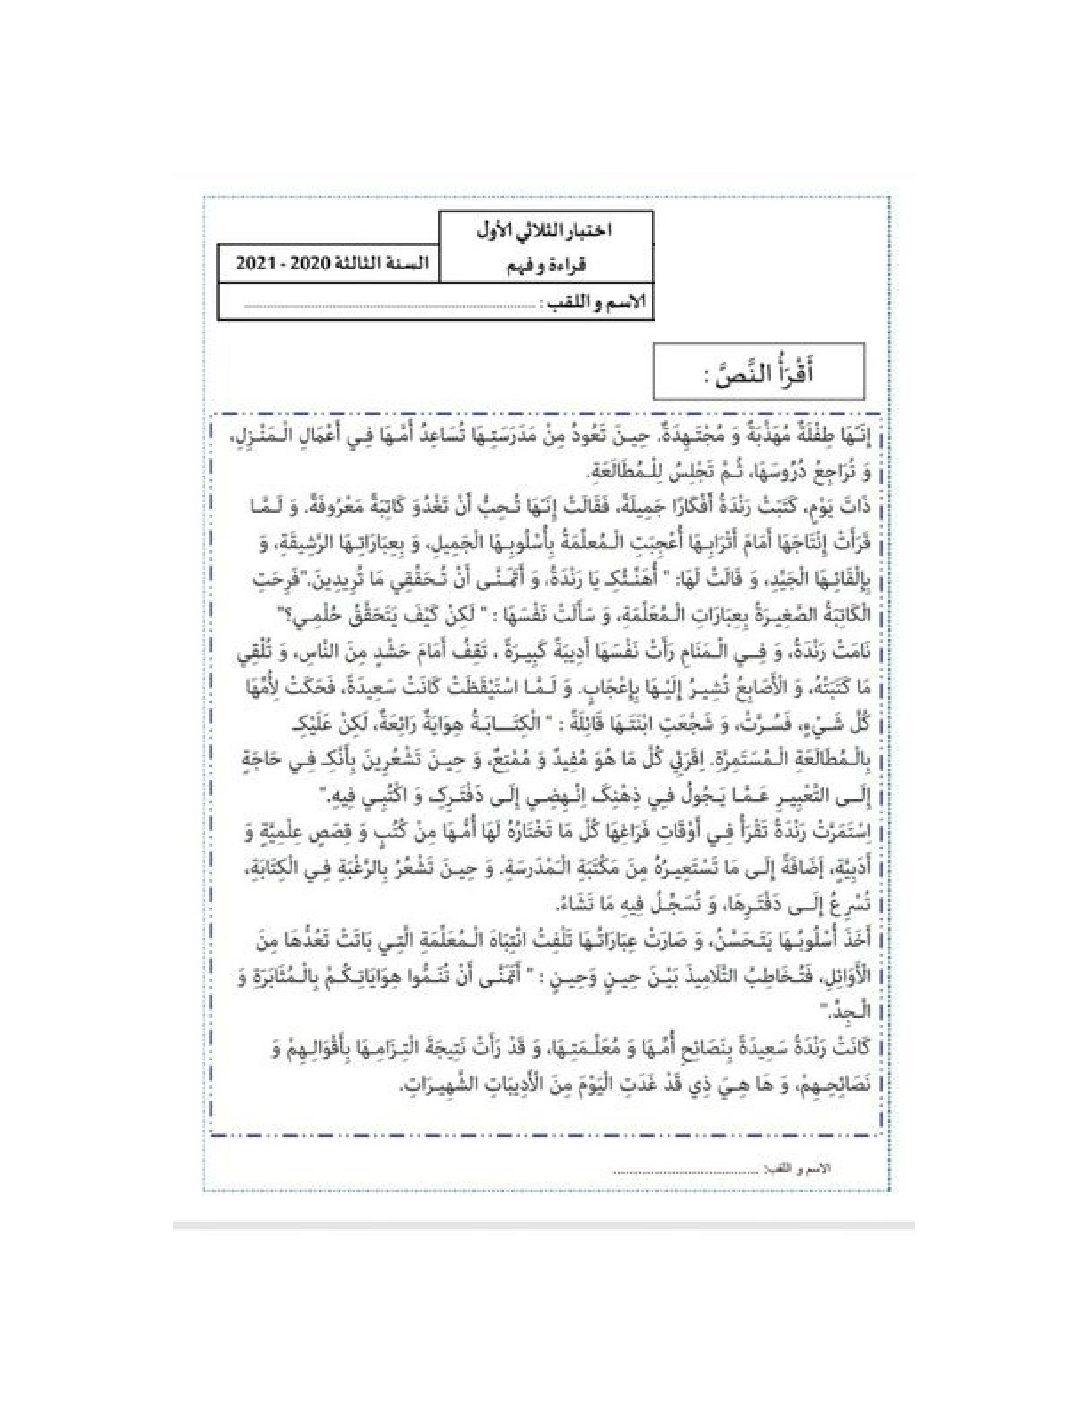 اختبار الثلاثي الأول
قراءة و فهم
السنة الثالثة 2020 - 2021
الاسم و اللقب : ........................................
أَقْرَأُ النَّصَّ :
إِنَّهَا طِفْلَةٌ مُهَذَّبَةٌ وَ مُجْتَهِدَةٌ. حِينَ تَعُودُ مِنْ مَدَرَسَتِهَا تُسَاعِدُ أُمَّهَا فِي أَعْمَالِ الْمَنْزِلِ،
وَ تُرَاجِعُ دُرُوسَهَا، ثُمَّ تَجْلِسُ لِلْمُطَالَعَةِ.
ذَاتَ يَوْمٍ، كَتَبَتْ رَنْدَةُ أَفْكَارًا جَمِيلَةً، فَقَالَتْ إِنَّهَا تُحِبُّ أَنْ تَغْدُوَ كَاتِبَةً مَعْرُوفَةً. وَ لَمَّا
قَرَأَتْ إِنْتَاجَهَا أَمَامَ أَتْرَابِهَا أُعْجِبَتِ الْمُعلِّمَةُ بِأُسْلُوبِهَا الْجَمِيلِ، وَ بِعِبَارَاتِهَا الرَّشِيقَةِ، وَ
بِإِلْقَائِهَا الْجَيِّدِ، وَ قَالَتْ لَهَا: " أُهَنِّئُكِ يَا رَنْدَةُ، وَ أَتَمَنَّى أَنْ تُحَقِّقِي مَا تُرِيدِينَ."فَرِحَتِ
الْكَاتِبَةُ الصَّغِيرَةُ بِعِبَارَاتِ الْمُعَلِّمَةِ، وَ سَأَلَتْ نَفْسَهَا : " لَكِنْ كَيْفَ يَتَحَقَّقُ حُلْمِي؟"
نَامَتْ رَنْدَةُ، وَ فِي الْمَنَامِ رَأَتْ نَفْسَهَا أَدِيبَةً كَبِيرَةً ، تَقِفُ أَمَامَ حَشْدٍ مِنَ النَّاسِ، وَ تُلْقِي
مَا كَتَبَتْهُ، وَ الْأَصَابِعُ تُشِيرُ إِلَيْهَا بِإِعْجَابٍ. وَ لَمَّا اسْتَيْقَظَتْ كَانَتْ سَعِيدَةً، فَحَكَتْ لِأُمِّهَا
كُلَّ شَيْءٍ، فَسُرَّتْ، وَ شَجَّعَتِ ابْنَتَهَا قَائِلَةً : " الْكِتَابَةُ هِوَايَةٌ رَائِعَةٌ، لَكِنْ عَلَيْكِ
بِالْمُطَالَعَةِ الْمُسْتَمِرَّةِ. اِقْرَئِي كُلَّ مَا هُوَ مُفِيدٌ وَ مُمْتِعٌ، وَ حِينَ تَشْعُرِينَ بِأَنَّكِ فِي حَاجَةٍ
إِلَى التَّعْبِيرِ عَمَّا يَجُولُ فِي ذِهْنِكِ اِنْهِضِي إِلَى دَفْتَرِكِ وَ اكْتُبِي فِيهِ."
اِسْتَمَرَّتْ رَنْدَةُ تَقْرَأُ فِي أَوْقَاتِ فَرَاغِهَا كُلَّ مَا تَخْتَارُهُ لَهَا أُمُّهَا مِنْ كُتُبٍ وَ قِصَصٍ عِلْمِيَّةٍ وَ
أَدَبِيَّةٍ، إِضَافَةً إِلَى مَا تَسْتَعِيرُهُ مِنَ مَكْتَبَةِ الْمَدْرَسَةِ. وَ حِينَ تَشْعُرُ بِالرَّغْبَةِ فِي الْكِتَابَةِ،
تُسْرِعُ إِلَى دَفْتَرِهَا، وَ تُسَجِّلُ فِيهِ مَا تَشَاءُ.
أَخَذَ أُسْلُوبُهَا يَتَحَسَّنُ، وَ صَارَتْ عِبَارَاتُهَا تَلْفِتُ انْتِبَاهَ الْمُعَلِّمَةِ الَّتِي بَاتَتْ تَعُدُّهَا مِنَ
الْأَوَائِلِ، فَتُخَاطِبُ التَّلَامِيذَ بَيْنَ حِينٍ وَحِينٍ : " أَتَمَنَّى أَنْ تُنَمُّوا هِوَايَاتِكُمْ بِالْمُثَابَرَةِ وَ
الْجِدِّ."
كَانَتْ رَنْدَةُ سَعِيدَةً بِنَصَائِحِ أُمِّهَا وَ مُعَلِّمَتِهَا، وَ قَدْ رَأَتْ نَتِيجَةَ الْتِزَامِهَا بِأَقْوَالِهِمْ وَ
نَصَائِحِهِمْ، وَ هَا هِيَ ذِي قَدْ غَدَتِ الْيَوْمَ مِنَ الْأَدِيبَاتِ الشَّهِيرَاتِ.
الاسم و اللقب: ........................................